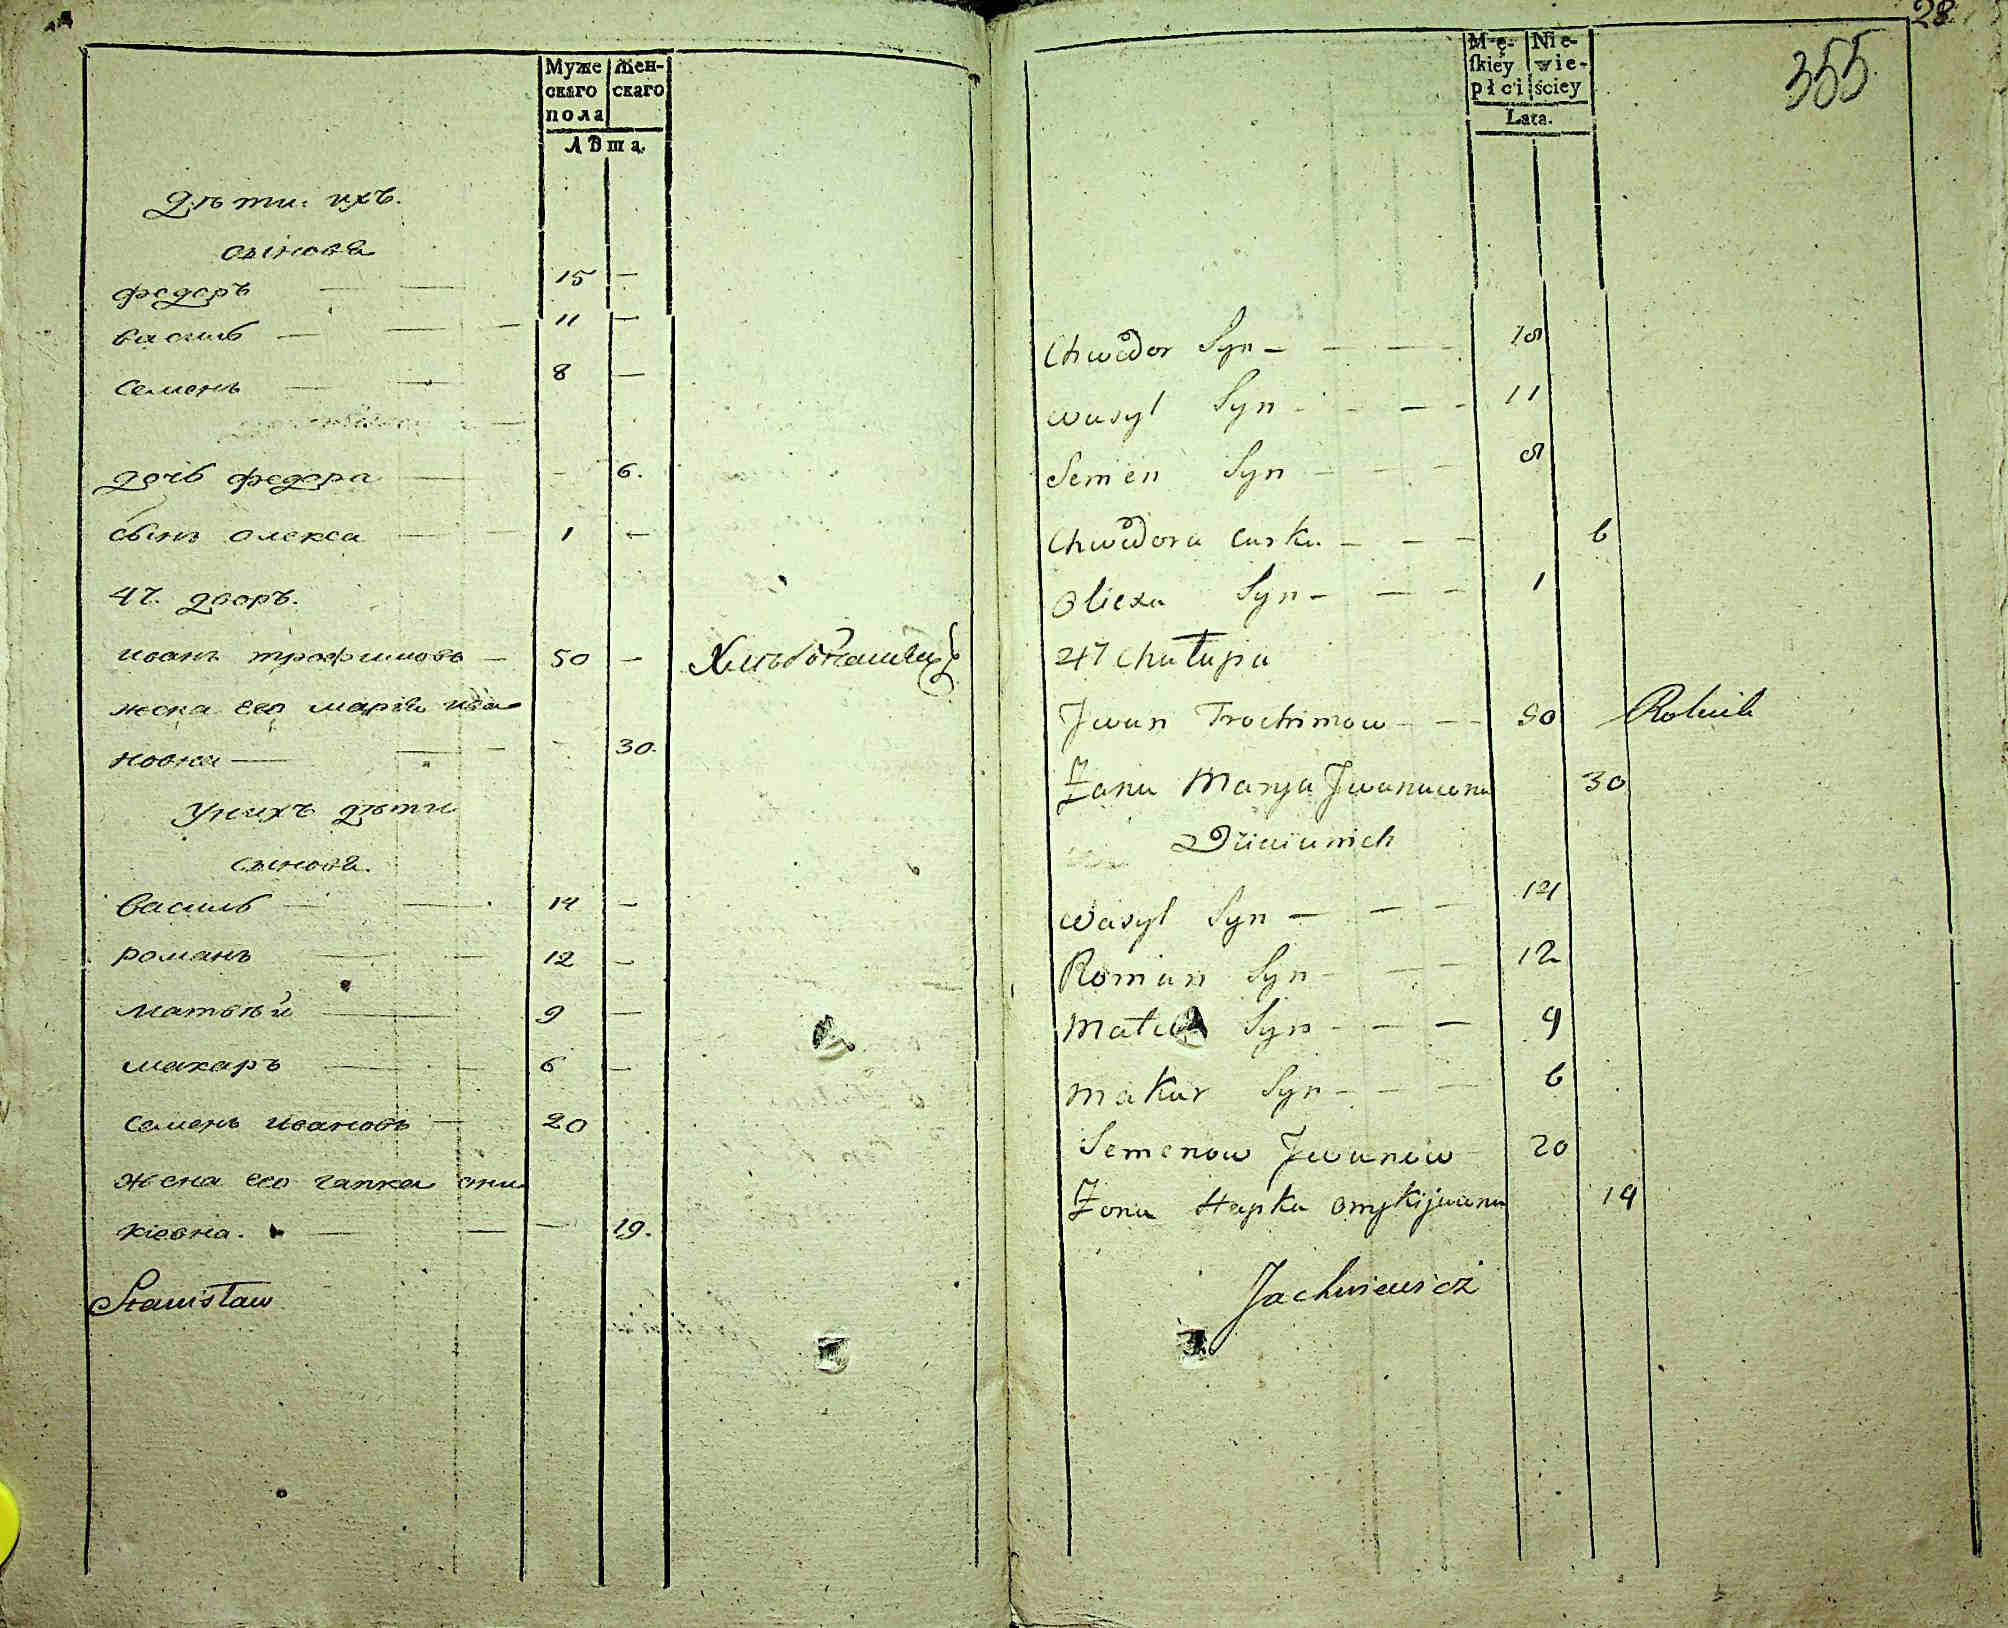 Муже Жен-
скаго скаго
пола
Лѣта.
Дѣти ихъ.
сынова
федоръ — — 15 —
василь — — — 11 —
семенъ — — 8 —
дочь федора — - 6.
сынъ олекса — — 1 —
47. дворъ.
иванъ трофимовъ — 50 — Хлебопашецъ
жена его марія ива
новна — — - 30.
У нихъ дѣти
сынова.
василь — — 14 —
романъ — — 12 —
матвѣй — 9 —
макаръ — — 6 —
семенъ ивановъ — 20
жена его гапка они
кіевна. — — — 19.
Stanisław
28
355
Mę- Nie-
skiey wie-
płci ściey
Lata.
Chwedor Syn — — — 15
Wasyl Syn - - — - 11
Semen Syn — - - 8
Chwedora Curka — — - 6
Oliexa Syn — — - 1
47 Chałupa
Jwan Trochimow — — 50 Rolnik
Żona Marya Jwanowna 30
Dzieci u nich
Wasyl Syn — — — 14
Roman Syn — — — 12
Syn - — — 9
Makar Syn - - — 6
Semenow Jwanow 20
Żona Hapka Onykijwna 19
Jachniewicz